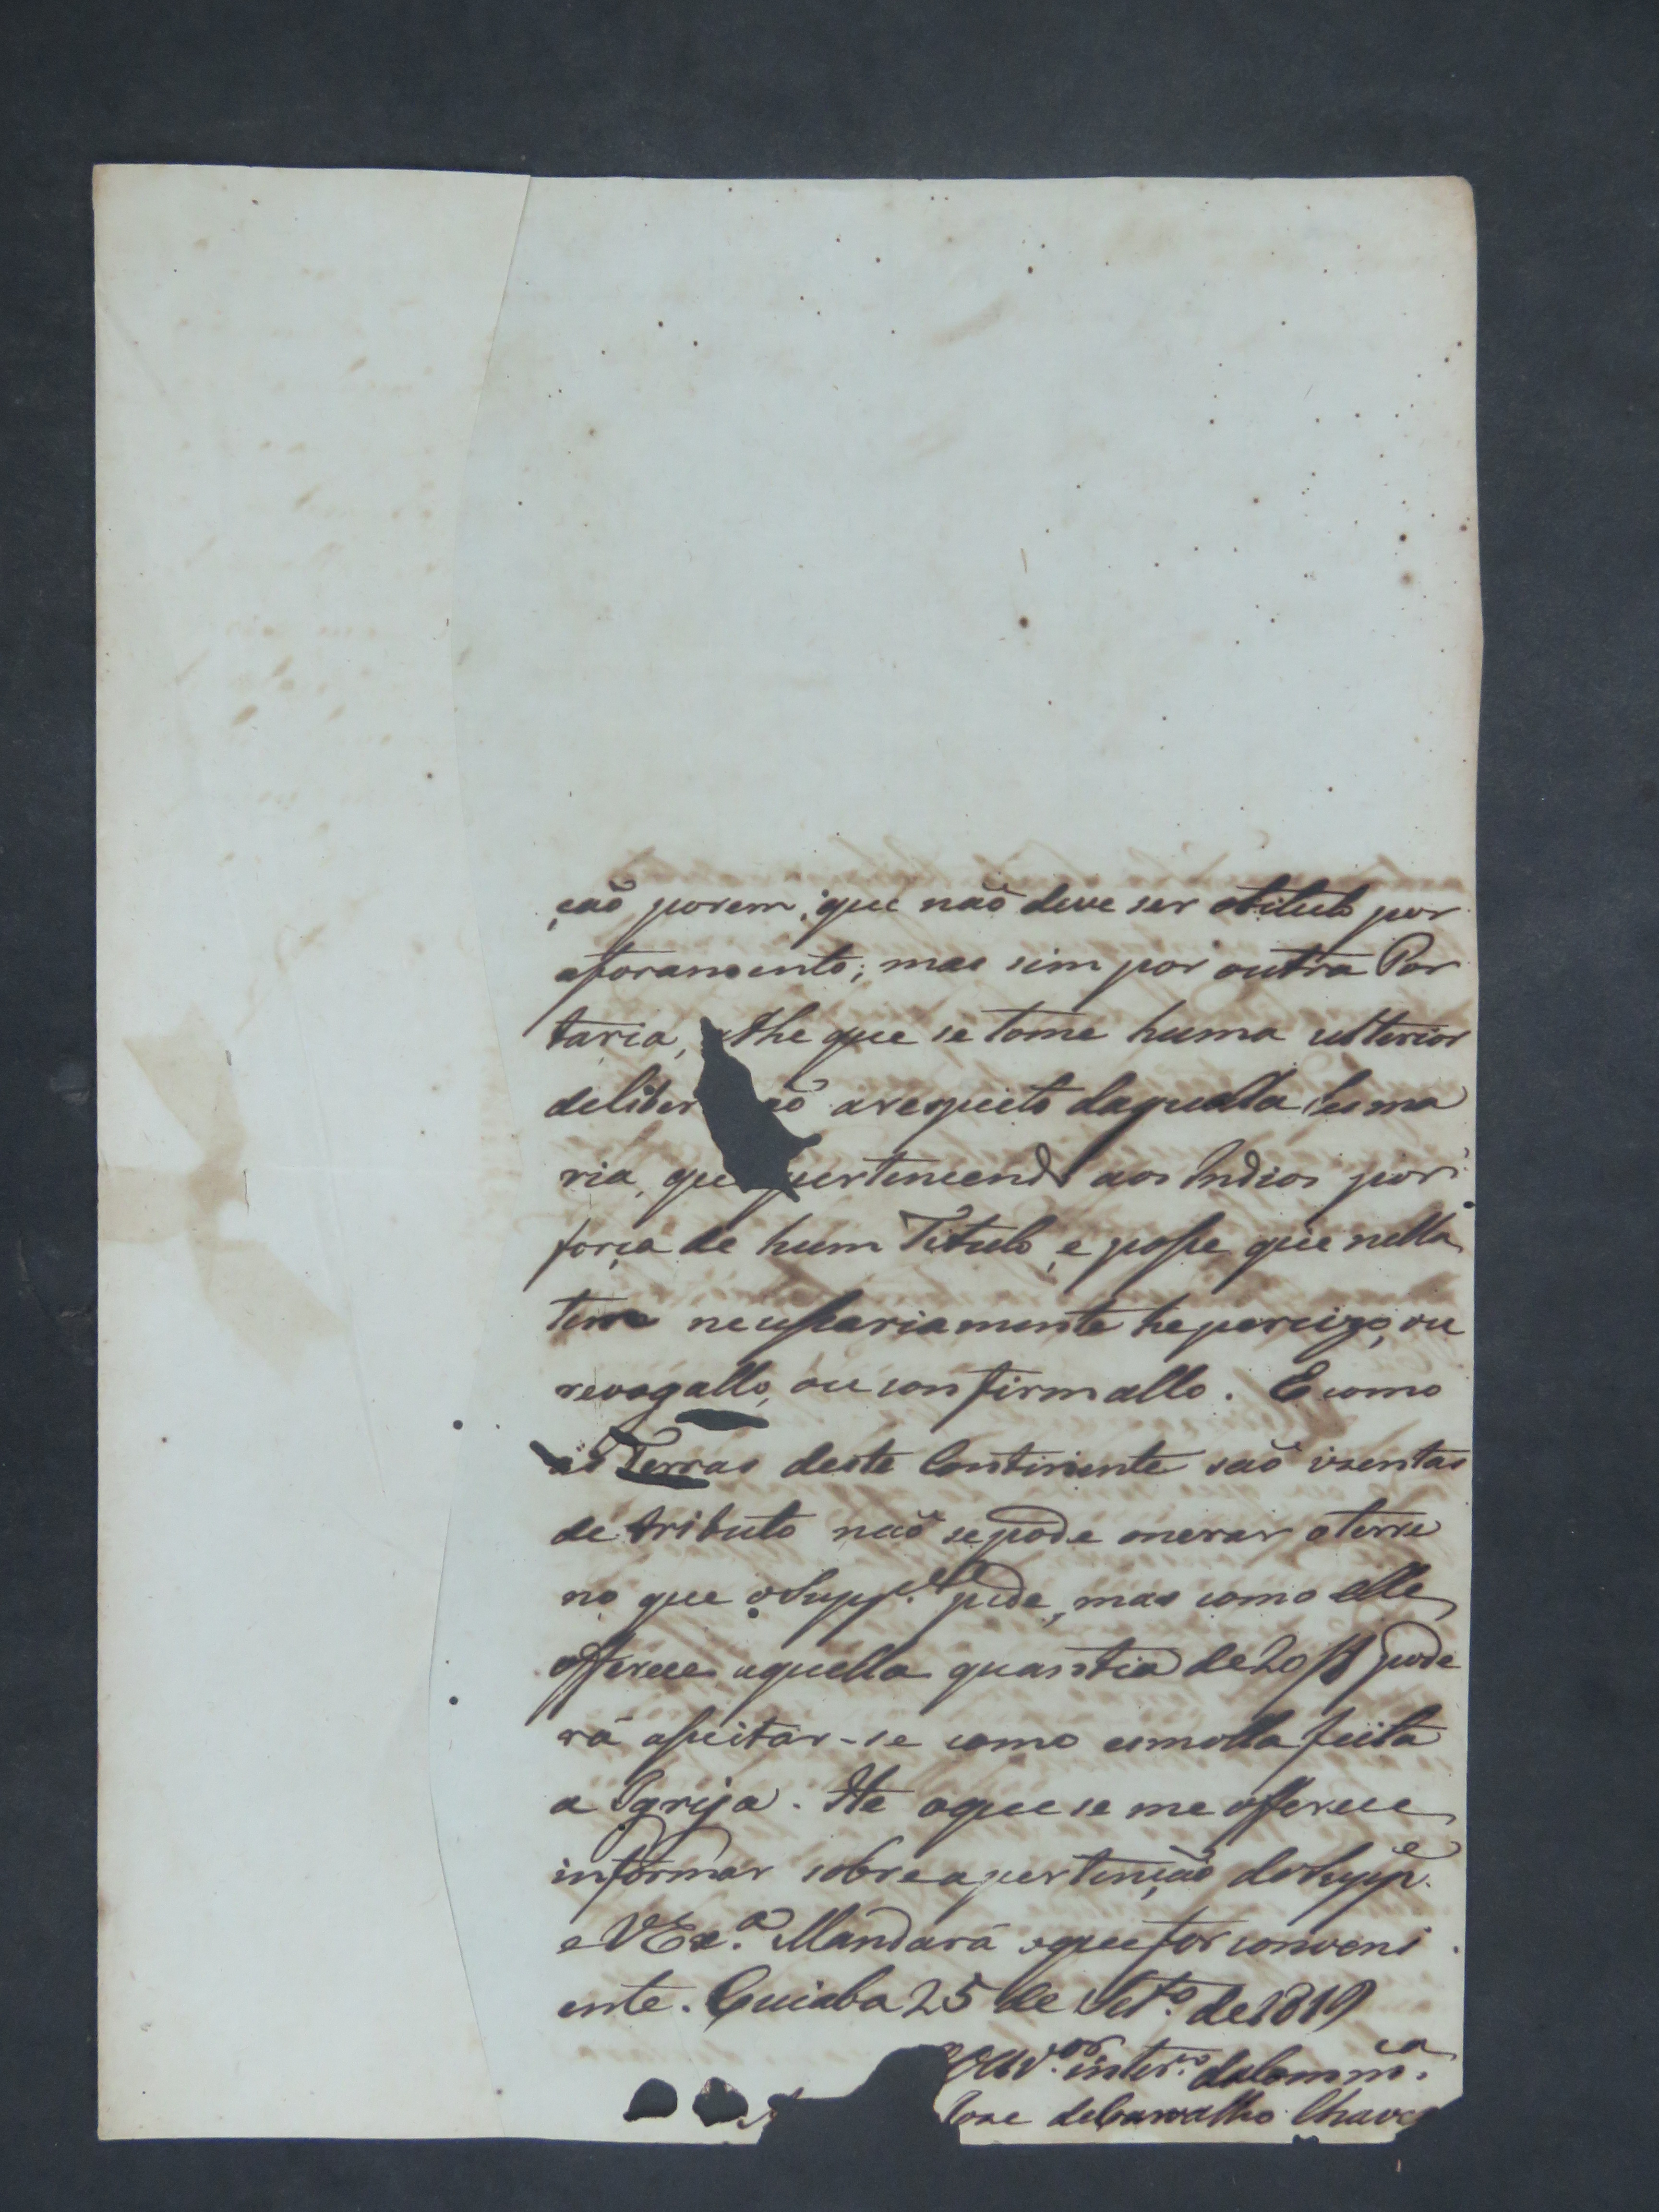 ção porem, que não deve ser otitulo por
aforamento; mas sim por outra Por
taria, athe que se tome huma ulterior
deliber ão arespeito daquella Sesma
ria, que pertencendo aos Indios por
força de hum Titulo, e posse que nella
tem necessariamente he percizo, ou
revogallo, ou confirmallo. E como
as Terras deste Continente são izentas
de tributo não sepode onerar oterre
no que o Supp.e pede, mas como elle
offerece aquella quantia de 20 // pode
rá asceitar-se como esmolla feita
a Igrija. He oque se me offerece
informar sobre a pertenção do Supp.e
e VEx.a Mandará oque for conveni
ente. Cuiaba 25 de Set.o de 1819
Ouv.or inter.o da Comm.ca
Jose de Carvalho Chaves